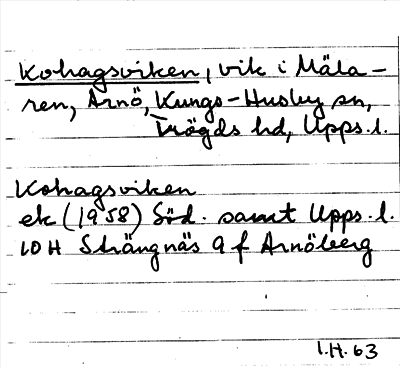 Kohagsviken, vik i Mäla-
ren, Arnö, Kungs-Husby sn,
Trögds hd, Upps. l.
Kohagsviken
ek (1958) Söd. samt Upps. l.
10 H Strängnäs 9 f Arnöberg
I.H. 63